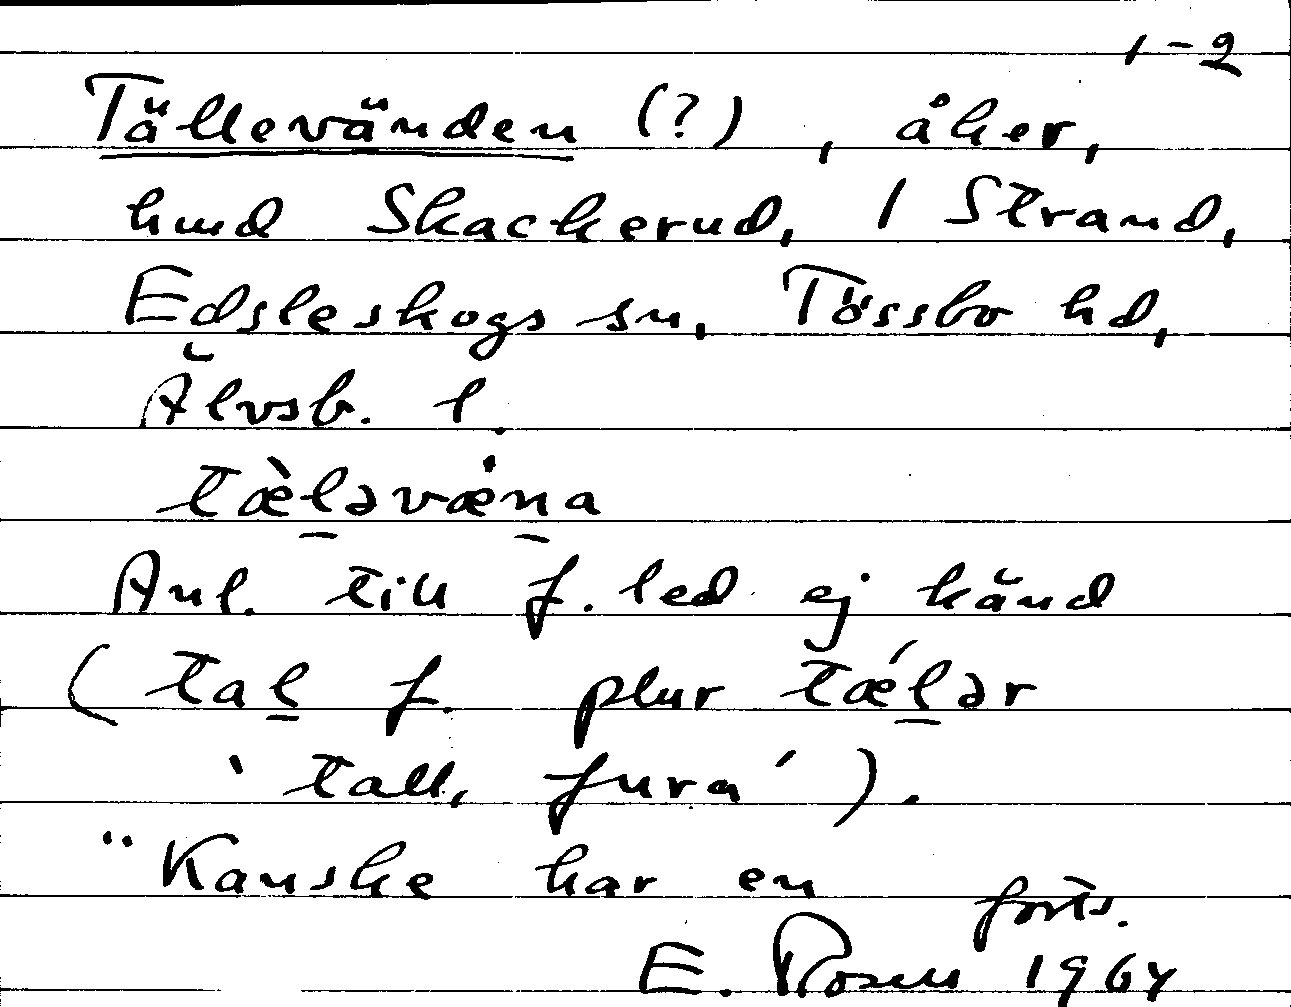 1-2
Tällevänden (?), åker,
hmd Skackerud, 1 Strand,
Edsleskogs sn, Tössbo hd,
Älvsb. l.
tæ̀l̠əvæ̇n̠a
Anl. till f. led ej känd
(tal̠ f. plur tǽl̠ər
'tall, fura').
"Kanske har en
forts.
E. Rosell 1964